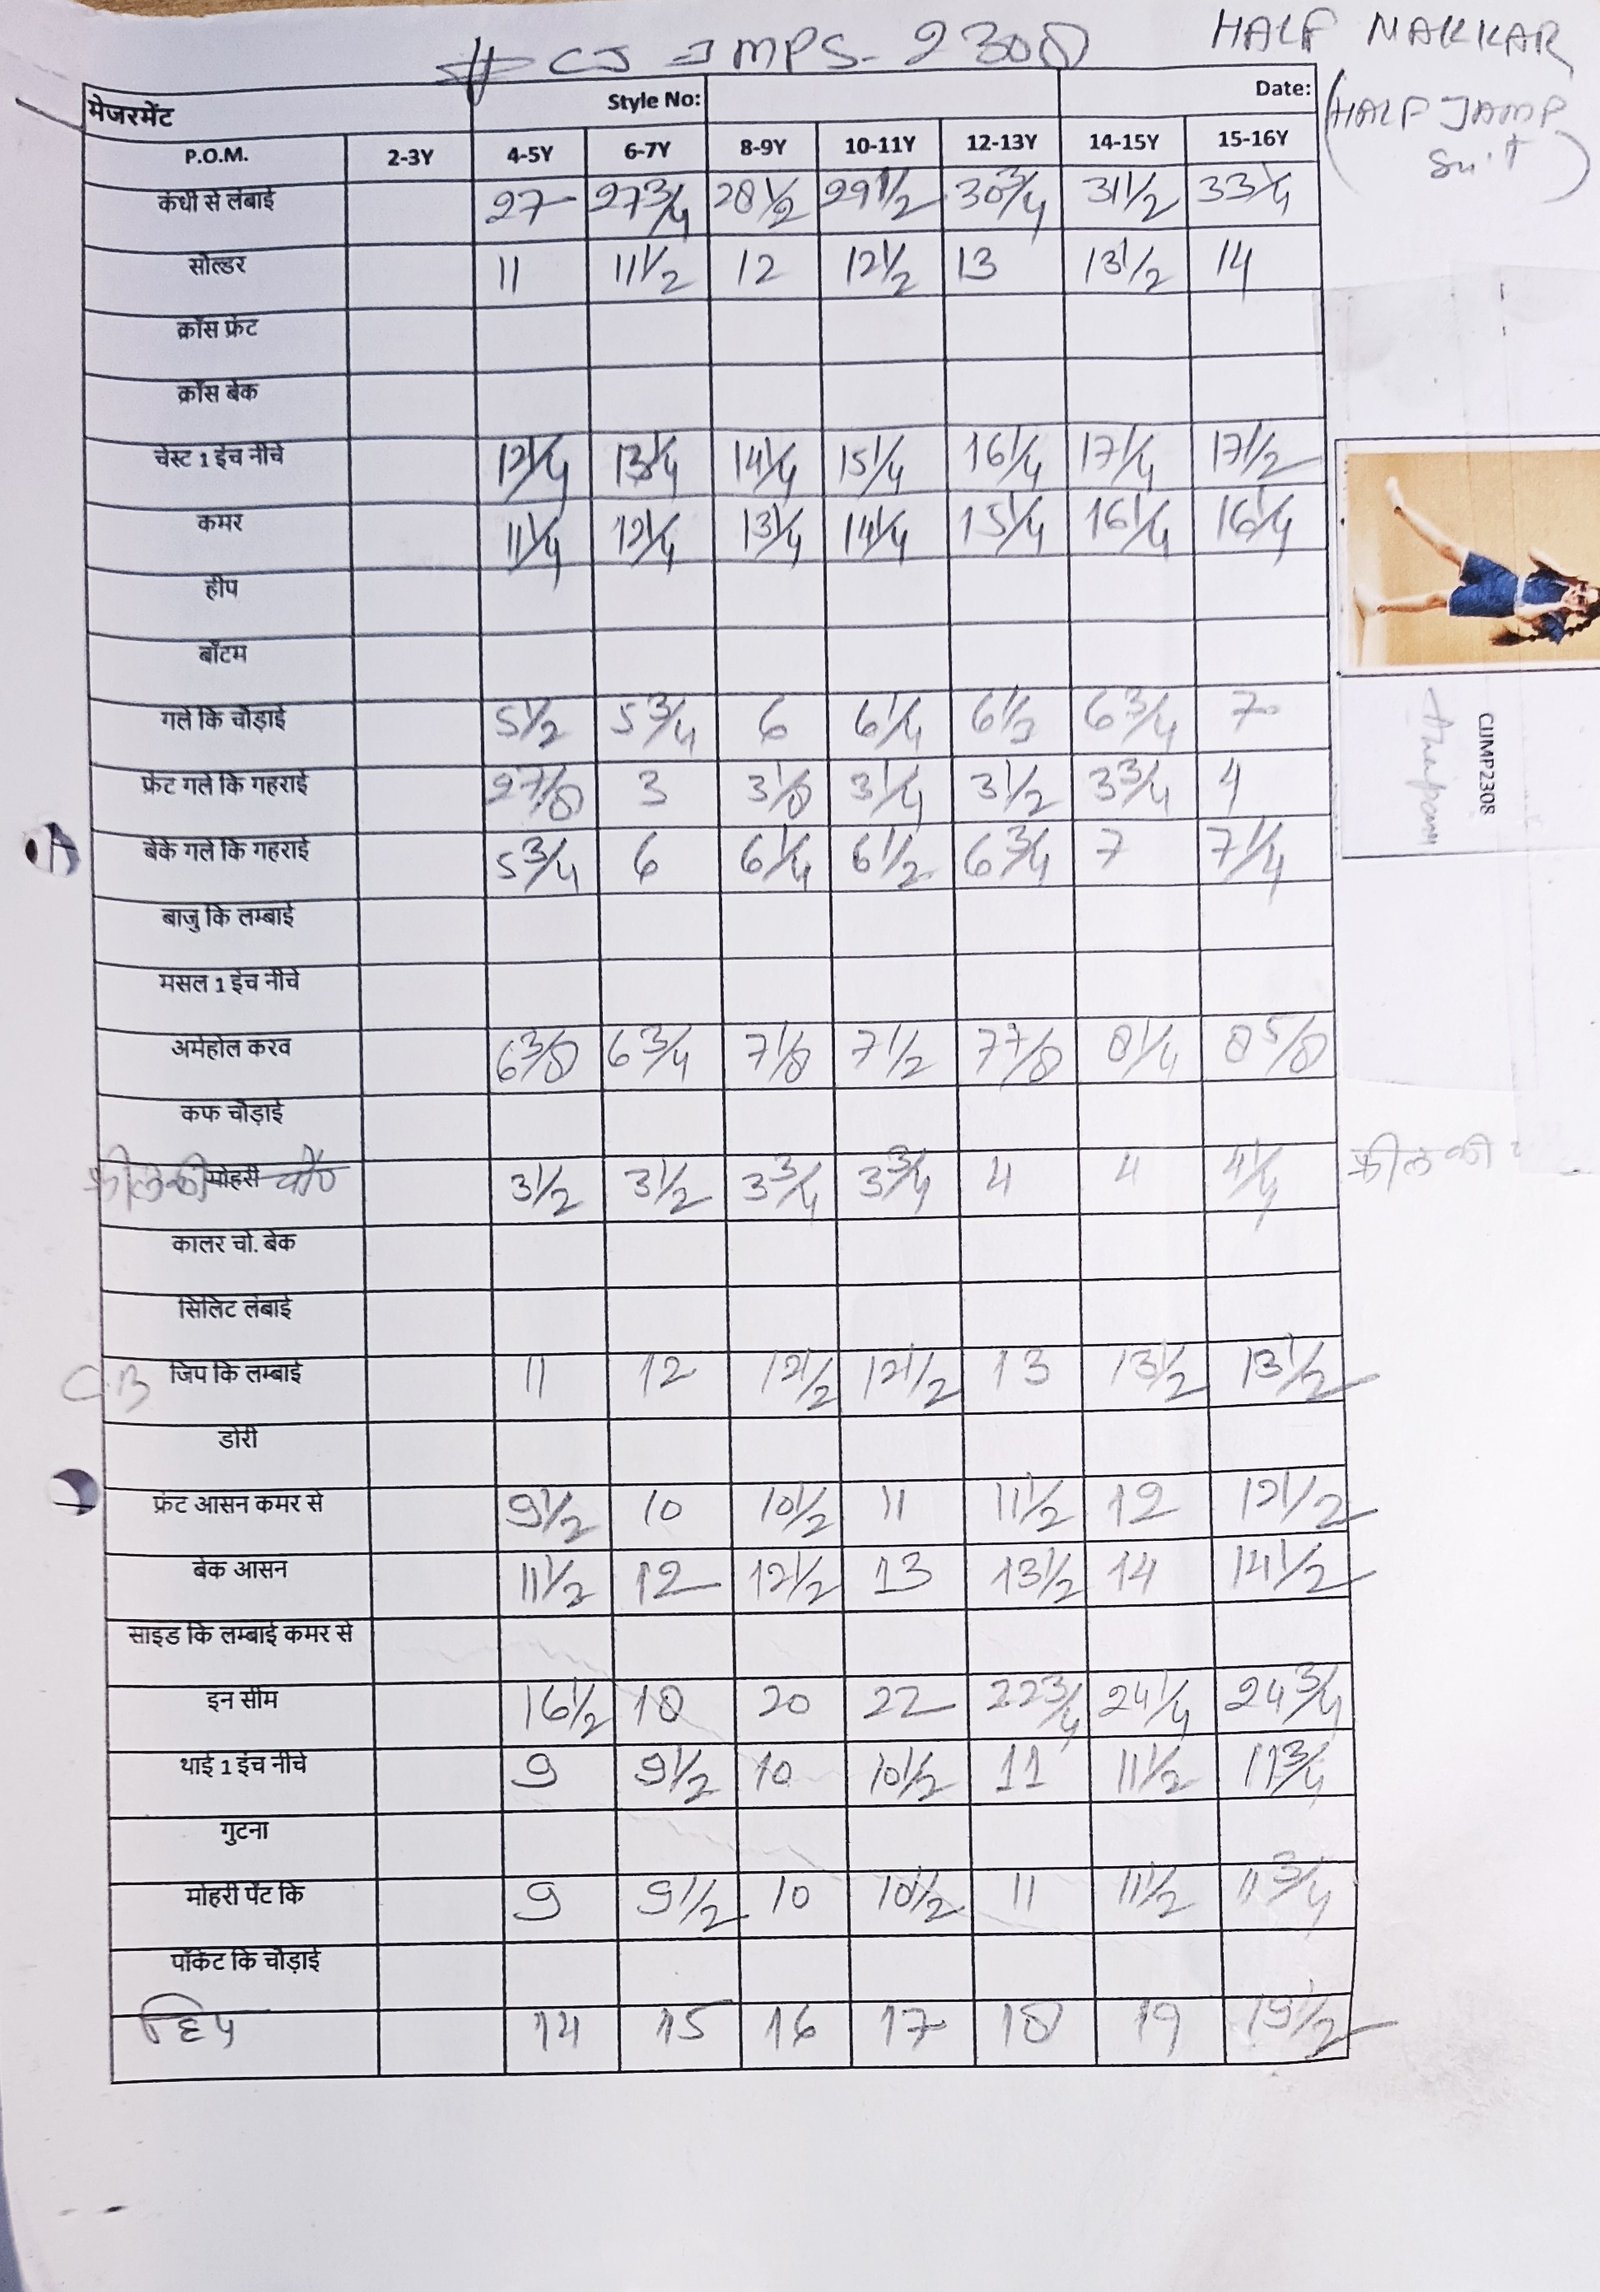 # CJ JMPS-2308
HALF NAKKAR
(HALF JAMP Suit)
मेजरमेंट Style No: Date:
P.O.M. 2-3Y 4-5Y 6-7Y 8-9Y 10-11Y 12-13Y 14-15Y 15-16Y
कंधी से लंबाई 27 27 3/4 28 1/2 29 1/2 30 3/4 31 1/2 33 1/4
सोल्डर 11 11 1/2 12 12 1/2 13 13 1/2 14
क्रॉस फ्रंट
क्रॉस बेक
चेस्ट 1 इंच नीचे 12 1/4 13 1/4 14 1/4 15 1/4 16 1/4 17 1/4 17 1/2
कमर 11 1/4 12 1/4 13 1/4 14 1/4 15 1/4 16 1/4 16 1/4
हीप
बॉटम
गले कि चौड़ाई 5 1/2 5 3/4 6 6 1/4 6 1/2 6 3/4 7
फ्रंट गले कि गहराई 2 7/8 3 3 1/8 3 1/4 3 1/2 3 3/4 4
बेके गले कि गहराई 5 3/4 6 6 1/4 6 1/2 6 3/4 7 7 1/4
बाजु कि लम्बाई
मसल 1 इंच नीचे
अर्महोल करव 6 3/8 6 3/4 7 1/8 7 1/2 7 7/8 8 1/4 8 5/8
कफ चौड़ाई
फ्रील की मोहरी 3 1/2 3 1/2 3 3/4 3 3/4 4 4 4 1/4 फ्रील की
कालर चो. बेक
सिलिट लंबाई
C.B जिप कि लम्बाई 11 12 12 1/2 12 1/2 13 13 1/2 13 1/2
डोरी
फ्रंट आसन कमर से 9 1/2 10 10 1/2 11 11 1/2 12 12 1/2
बेक आसन 11 1/2 12 12 1/2 13 13 1/2 14 14 1/2
साइड कि लम्बाई कमर से
इन सीम 16 1/2 18 20 22 22 3/4 24 1/4 24 3/4
थाई 1 इंच नीचे 9 9 1/2 10 10 1/2 11 11 1/2 11 3/4
गुटना
मोहरी पेंट कि 9 9 1/2 10 10 1/2 11 11 1/2 11 3/4
पॉकेट कि चौड़ाई
हिप 14 15 16 17 18 19 19 1/2
CUMP2308